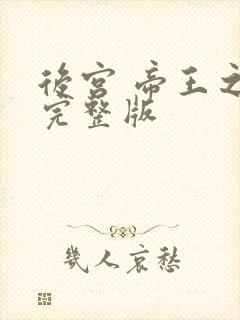 後宮 帝王之
完整版
幾人哀愁